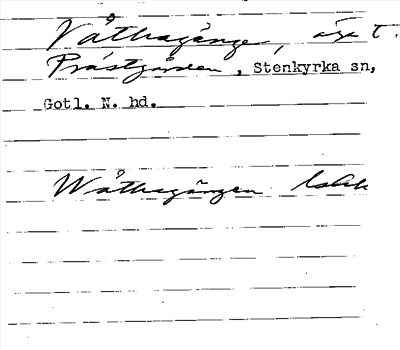 Våthagänge, äga t.
Prästgården, Stenkyrka sn,
Gotl. N. hd.
Wåthagängen